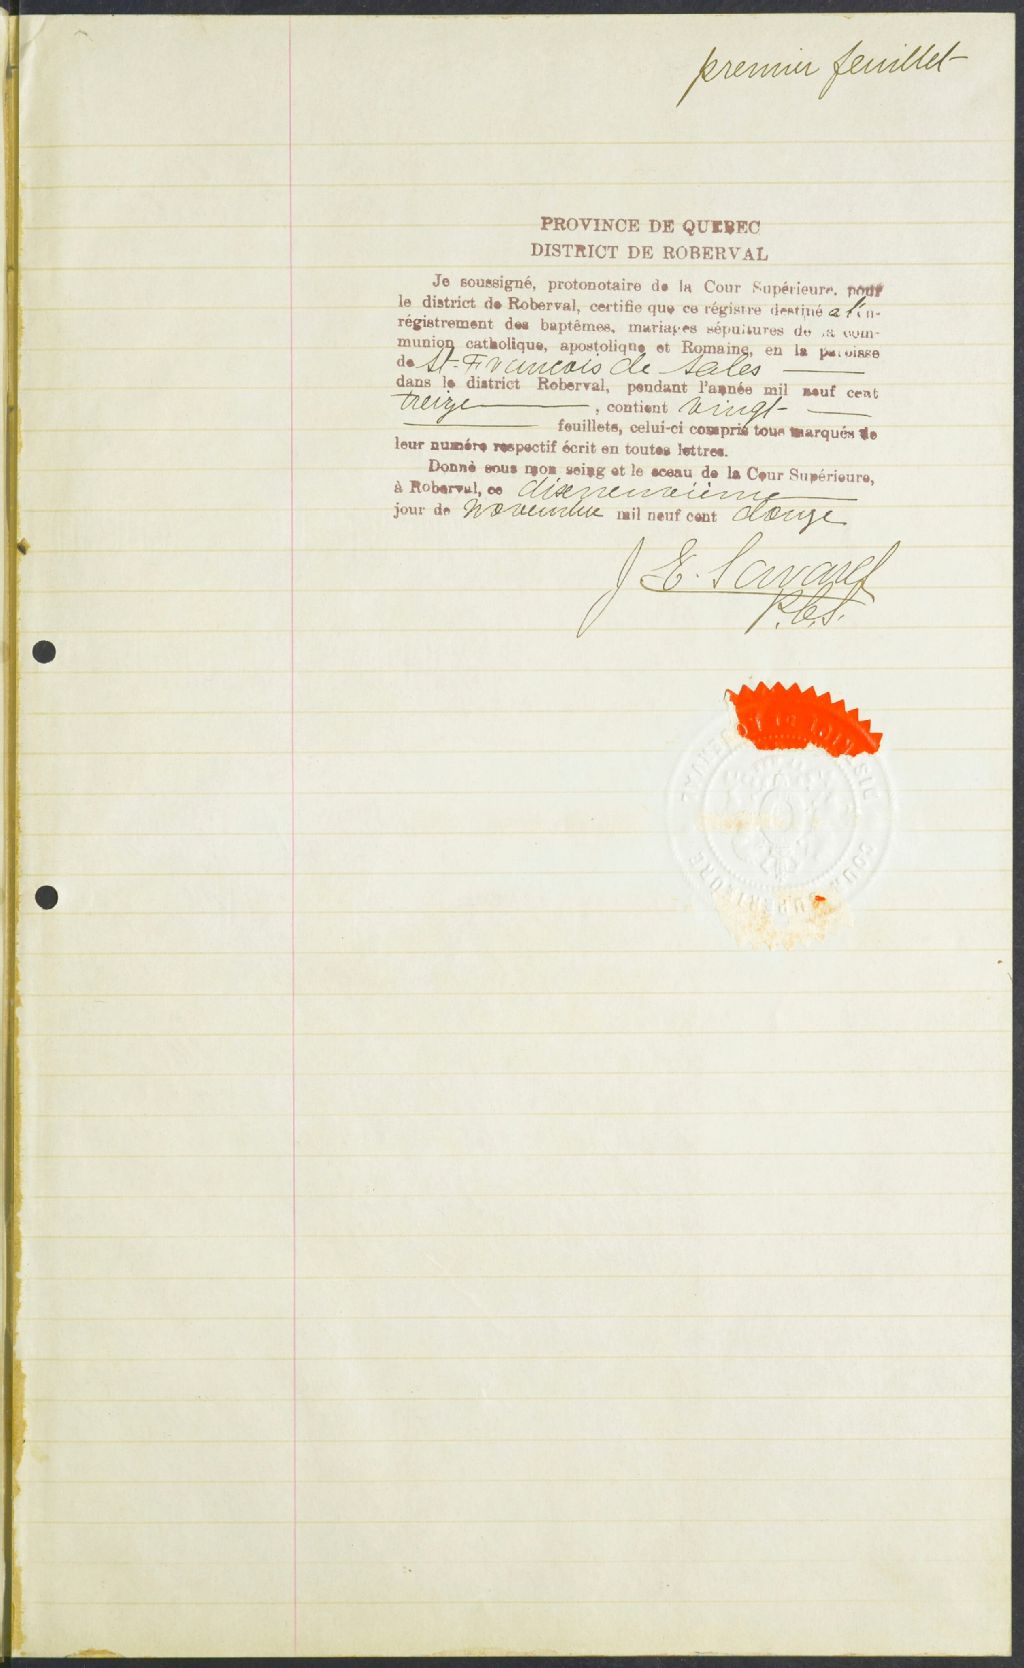 premier feuillet
PROVINCE DE QUEBEC
DISTRICT DE ROBERVAL
Je soussigné, protonotaire de la Cour Supérieure, pour
le district de Roberval, certifie que ce régistre destiné a l'en-
régistrement des baptêmes, mariages sépultures de la com-
munion catholique, apostolique et Romaine, en la paroisse
de St-Francois de Sales
dans le district Roberval, pendant l'année mil neuf cent
treize, contient vingt
feuillets, celui-ci compris tous marqués de
leur numéro respectif écrit en toutes lettres.
Donné sous mon seing et le sceau de la Cour Supérieure,
à Roberval, ce dixneuvième
jour de Novembre mil neuf cent douze
J. E. Savard
P.C.S.
COUR SUPERIEURE